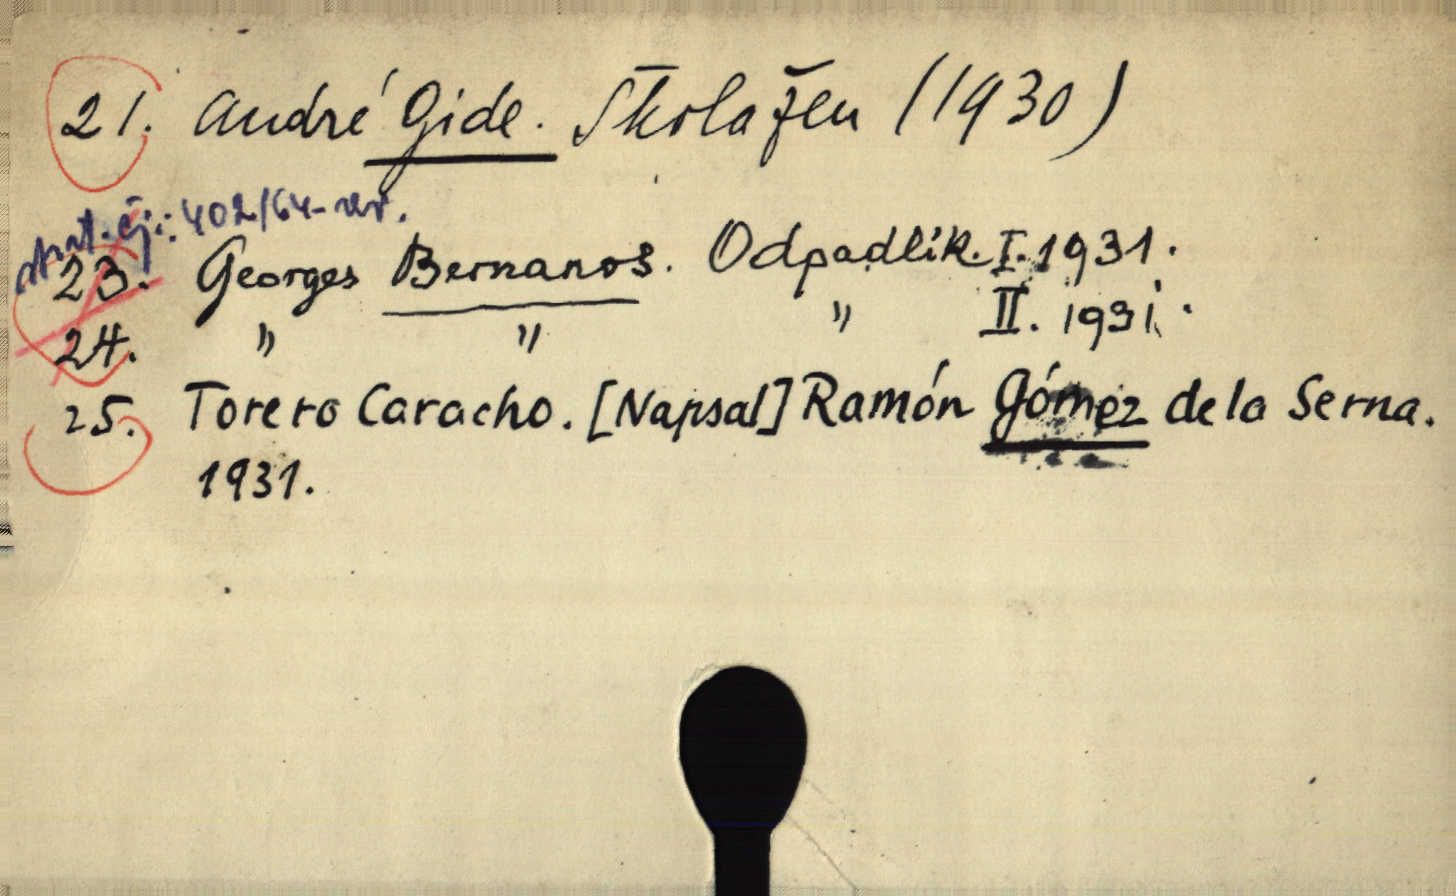 21. André Gide. Škola žen (1930)
ztrat. čj.: 402/64-rev.
23. Georges Bernanos. Odpadlík. I. 1931.
24. " " " II. 1931.
25. Torero Caracho. [Napsal] Ramón Gómez de la Serna.
1931.